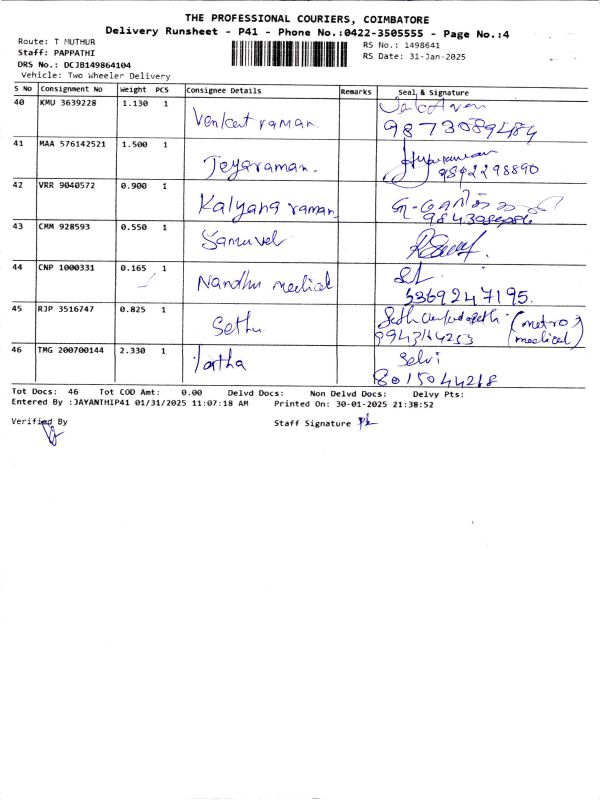 THE PROFESSIONAL COURIERS, COIMBATORE
Delivery Runsheet - P41 - Phone No.:0422-3505555 - Page No.:4
Route: T MUTHUR
RS No.: 1498641
Staff: PAPPATHI
RS Date: 31-Jan-2025
DRS No.: DCJB149864104
Vehicle: Two Wheeler Delivery
S No Consignment No Weight PCS Consignee Details Remarks Seal & Signature
40 KMU 3639228 1.130 1 Venkat raman 9873089484
41 MAA 576142521 1.500 1 Jeyaraman. 9842298890
42 VRR 9040572 0.900 1 Kalyana raman
43 CMM 928593 0.550 1 Samuvel
44 CNP 1000331 0.165 1 Nandhu medical 3369247195.
45 RJP 3516747 0.825 1 Sethu (metro medical) 9943164253
46 TMG 200700144 2.330 1 Selvi 8015044218
Tot Docs: 46 Tot COD Amt: 0.00 Delvd Docs: Non Delvd Docs: Delvy Pts:
Entered By :JAYANTHIP41 01/31/2025 11:07:18 AM Printed On: 30-01-2025 21:38:52
Verified By Staff Signature